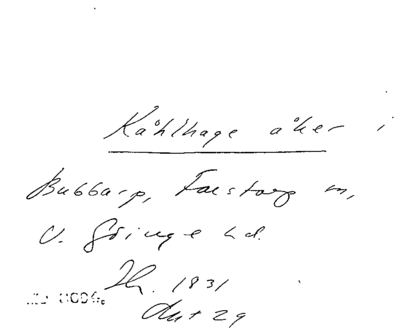 Kåhlhage åker i
Bubbarp, Farstorp m,
V. Göinge hd.
1831
Akt 29